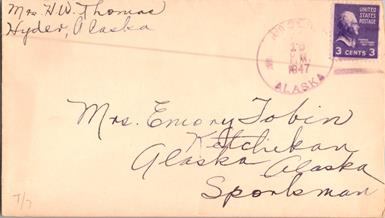 Mrs H.W. Thomas
Hyder, Alaska
UNITED STATES
POSTAGE
3 CENTS 3
1947
ALASKA
Mrs. Emory Tobin
Ketchikan
Alaska Alaska
Sportsman
T/7